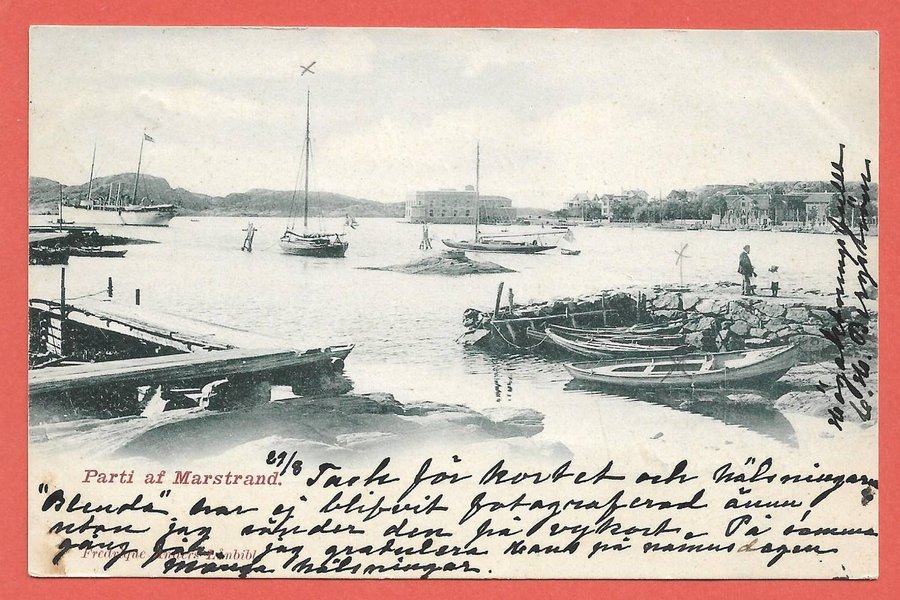 Parti af Marstrand.
29/8 Tack för kortet och hälsningarna
"Blenda" har ej blifvit fotograferad ännu
utan jag sänder den på vykort. På samma
gång jag gratulera Hans på namnsdagen
Många hälsningar.
Fredrique Lånbibl.
Högaktningsfullt